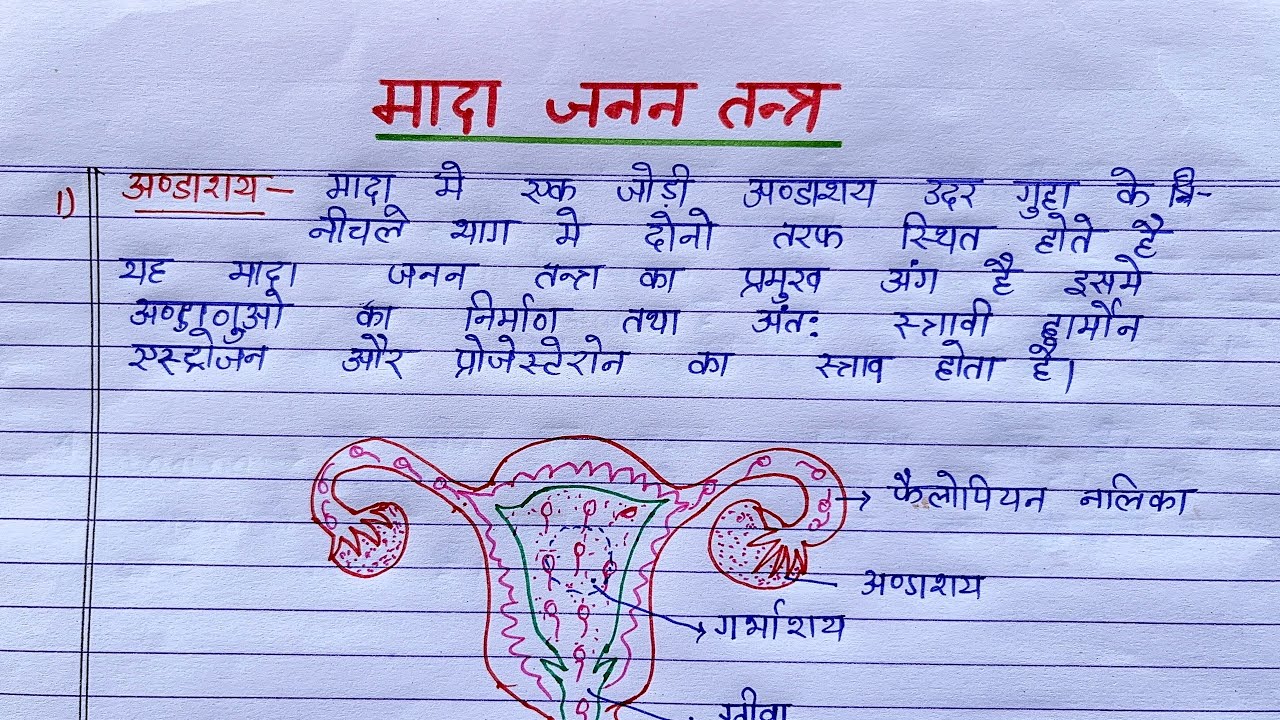 मादा जनन तन्त्र
1) अण्डाशय – मादा मे एक जोड़ी अण्डाशय उदर गुहा के नि-
नीचले भाग मे दोनो तरफ स्थित होते है
यह मादा जनन तन्त्र का प्रमुख अंग है इसमे
अण्डाणुओ का निर्माण तथा अंतः स्त्रावी हार्मोन
एस्ट्रोजन और प्रोजेस्टेरोन का स्त्राव होता है।
फैलोपियन नालिका
अण्डाशय
गर्भाशय
ग्रीवा